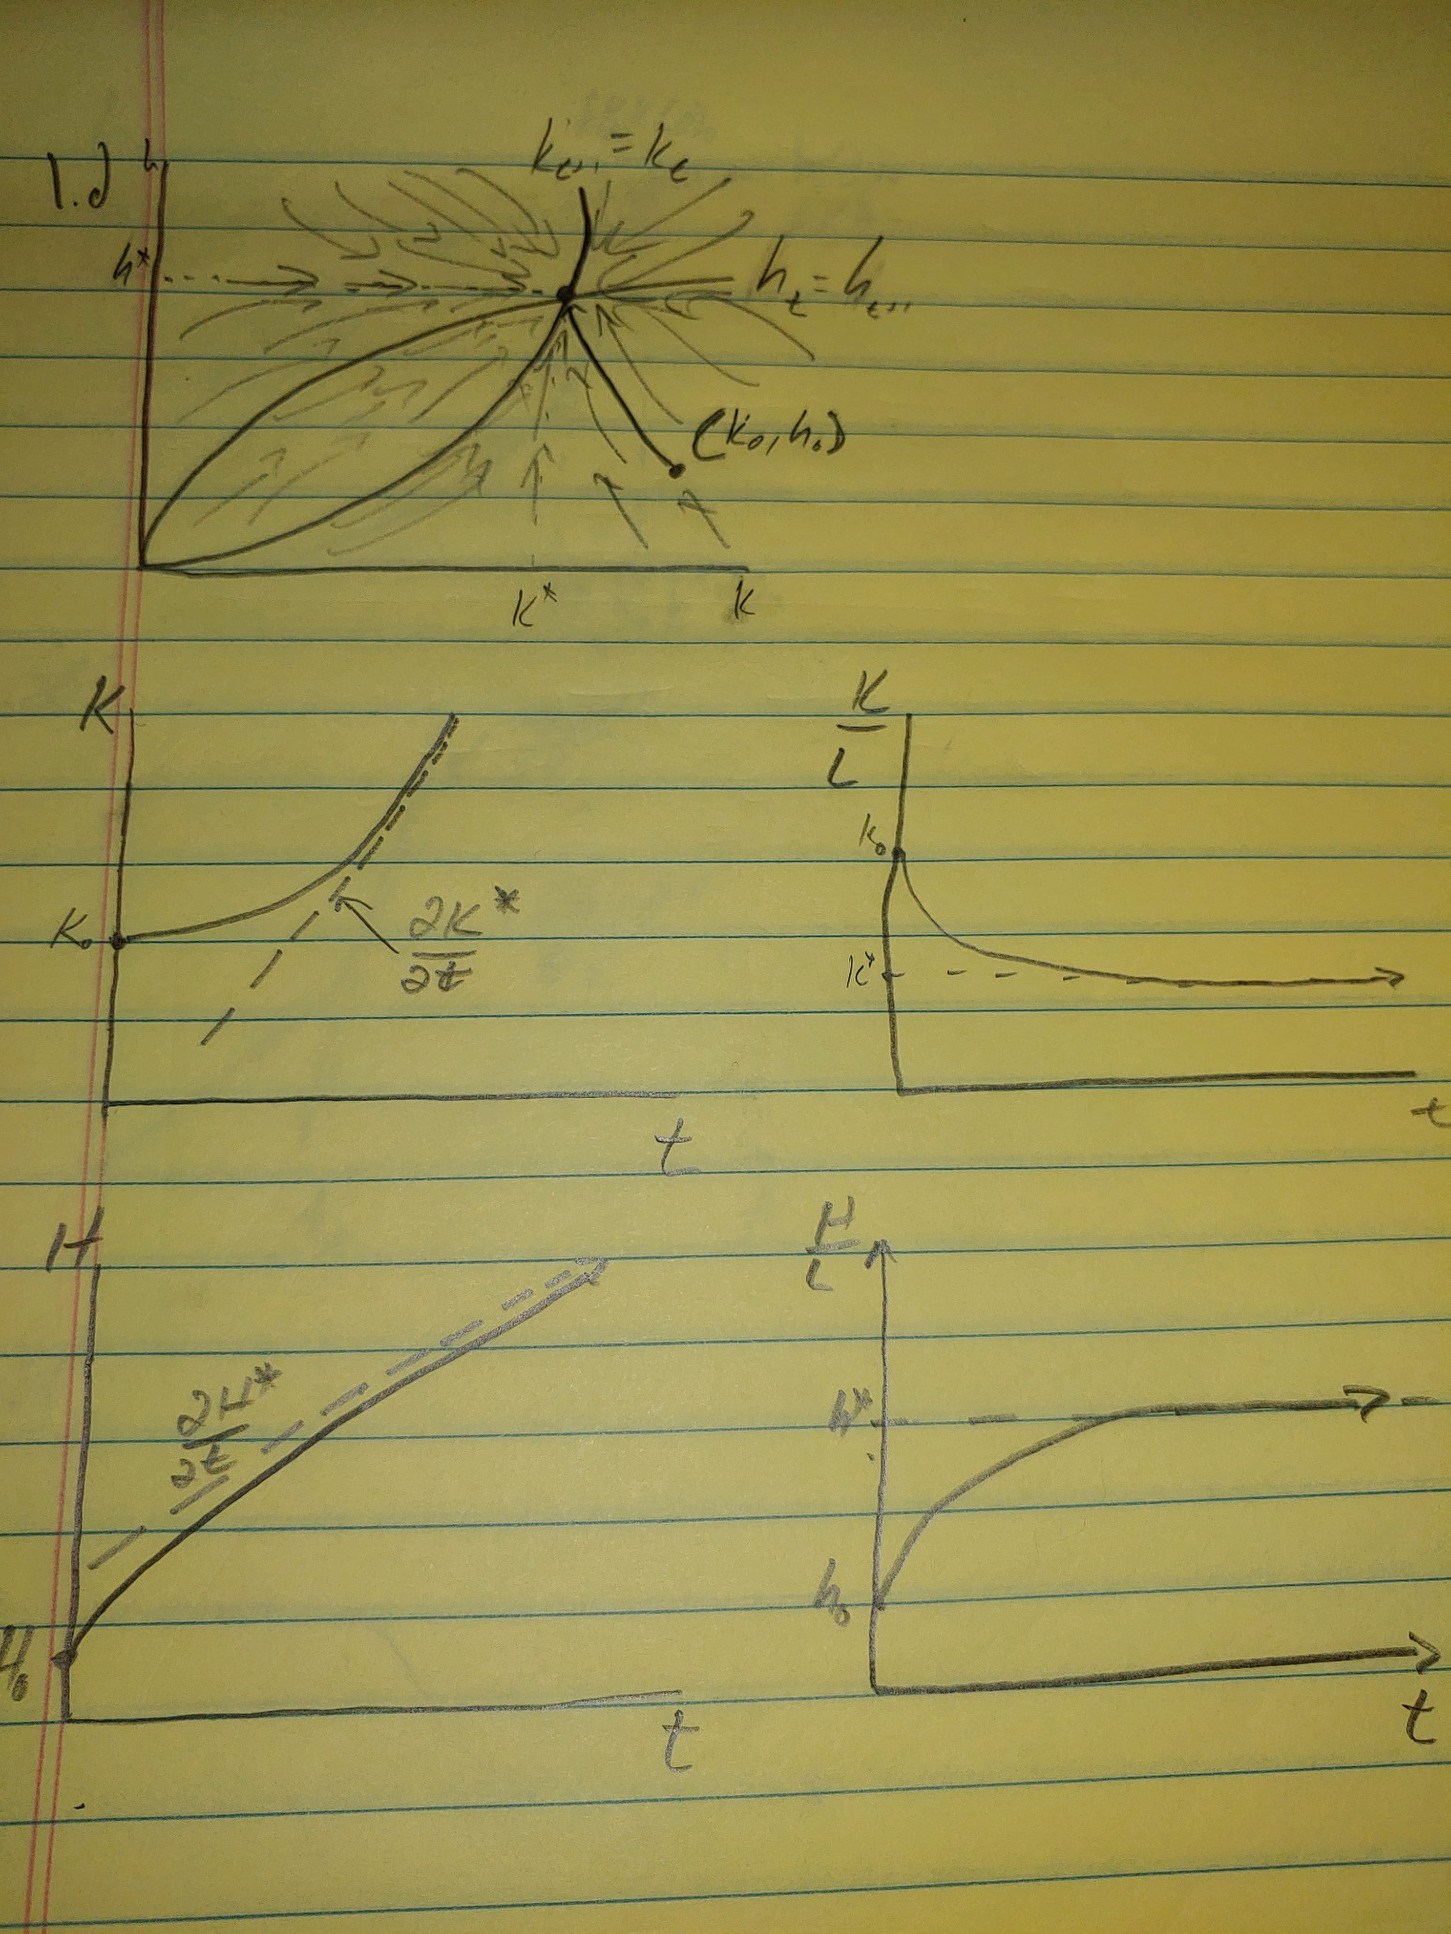 1.d
h
k_{t+1} = k_t
h*
h_t = h_{t+1}
(k_0, h_0)
k*
k
K
K_0
∂K*
∂t
t
K
L
k_0
k*
t
H
∂H*
∂t
H_0
t
H
L
h*
h_0
t